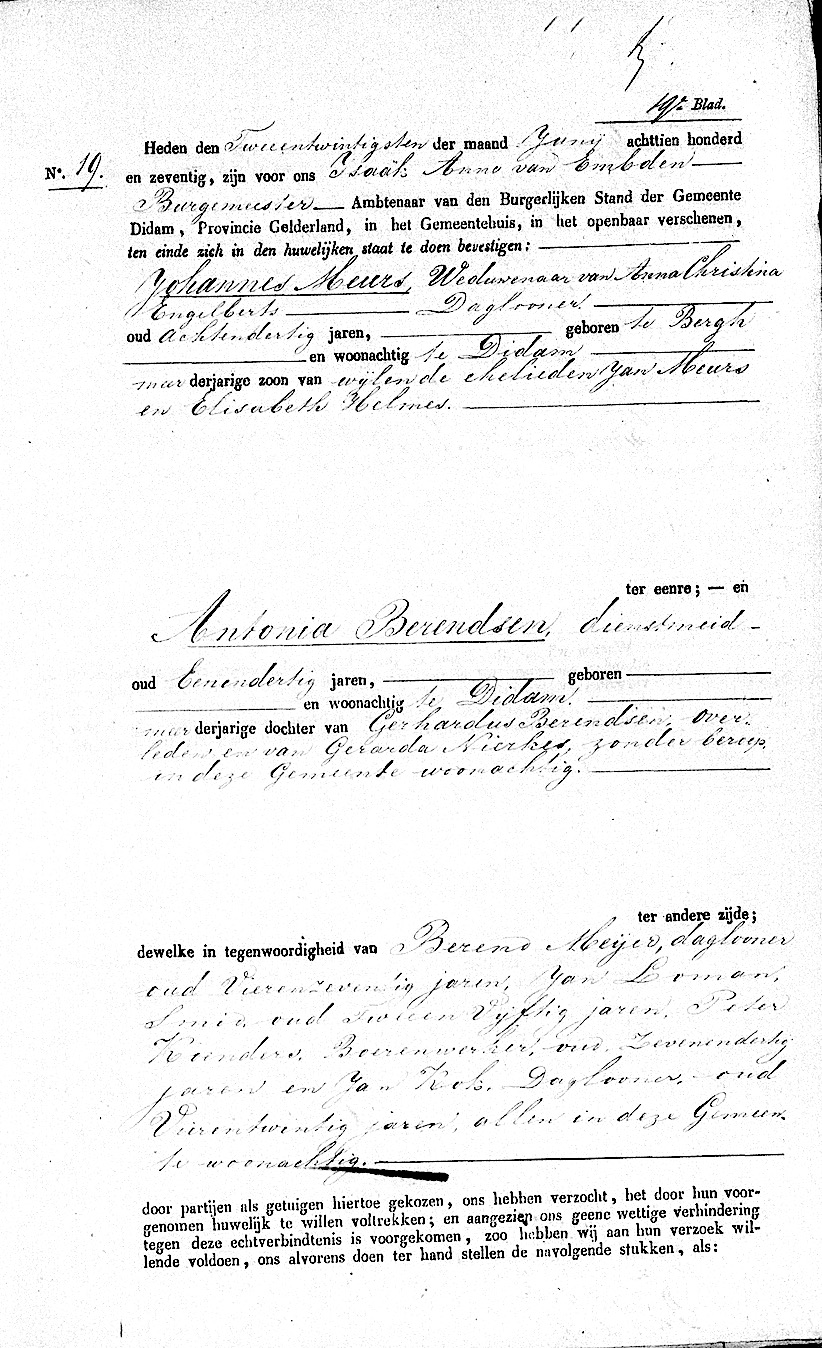 19e Blad.
No. 19.
Heden den Tweeentwintigsten der maand Junij achttien honderd
en zeventig, zijn voor ons Isaäk Anno van Embden
Burgemeester Ambtenaar van den Burgerlijken Stand der Gemeente
Didam, Provincie Gelderland, in het Gemeentehuis, in het openbaar verschenen,
ten einde zich in den huwelijken staat te doen bevestigen:
Johannes Meurs, Weduwenaar van Anna Christina
Engelberts Daglooner.
oud Achtendertig jaren, geboren te Bergh
en woonachtig te Didam
meerderjarige zoon van wijlen de ehelieden Jan Meurs
en Elisabeth Helmes.
ter eenre; — en
Antonia Berendsen, dienstmeid
oud Eenendertig jaren, geboren
en woonachtig te Didam.
meerderjarige dochter van Gerhardus Berendsen, over-
leden en van Gerarda Nierkes, zonder beroep,
in deze Gemeente woonachtig.
ter andere zijde;
dewelke in tegenwoordigheid van Berend Meijer, daglooner
oud Vierenzeventig jaren, Jan Loman,
Smid oud Tweeen Vijftig jaren, Peter
Kienders, Boerenwerker, oud Zevenendertig
jaren en Jan Kok, Daglooner, oud
Vierentwintig jaren, allen in deze Gemeen-
te woonachtig.
door partijen als getuigen hiertoe gekozen, ons hebben verzocht, het door hun voor-
genomen huwelijk te willen voltrekken; en aangezien ons geene wettige verhindering
tegen deze echtverbindtenis is voorgekomen, zoo hebben wij aan hun verzoek wil-
lende voldoen, ons alvorens doen ter hand stellen de navolgende stukken, als: